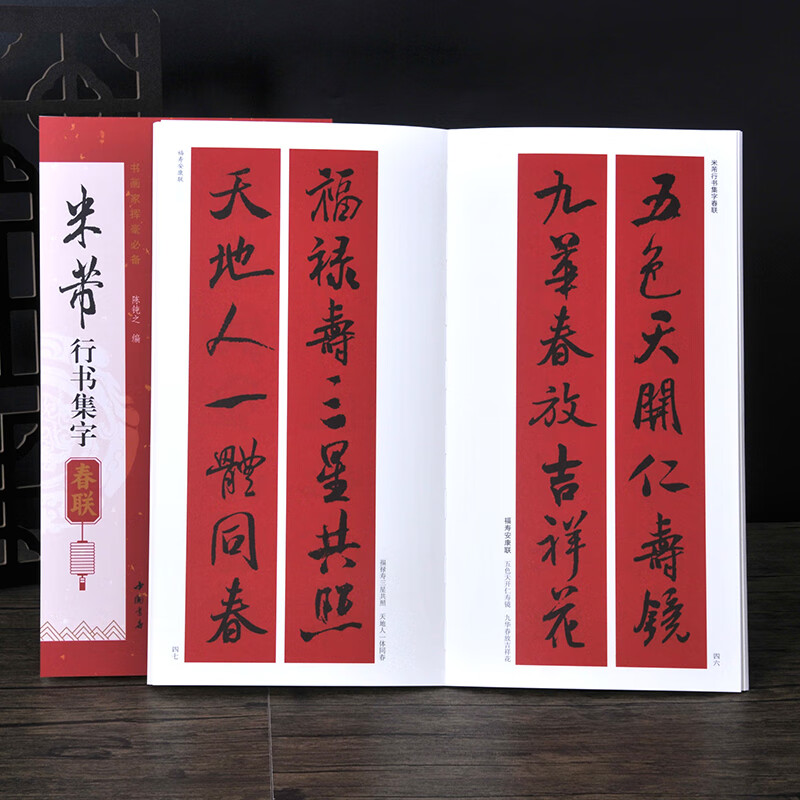 书画家挥毫必备
米芾
行书集字
春联
陈钝之 编
中国书店
米芾行书集字春联
五色天開仁壽鏡
九華春放吉祥花
福寿安康联
五色天开仁寿镜 九华春放吉祥花
四六
福寿安康联
福禄壽三星共照
天地人一體同春
福禄寿三星共照 天地人一体同春
四七